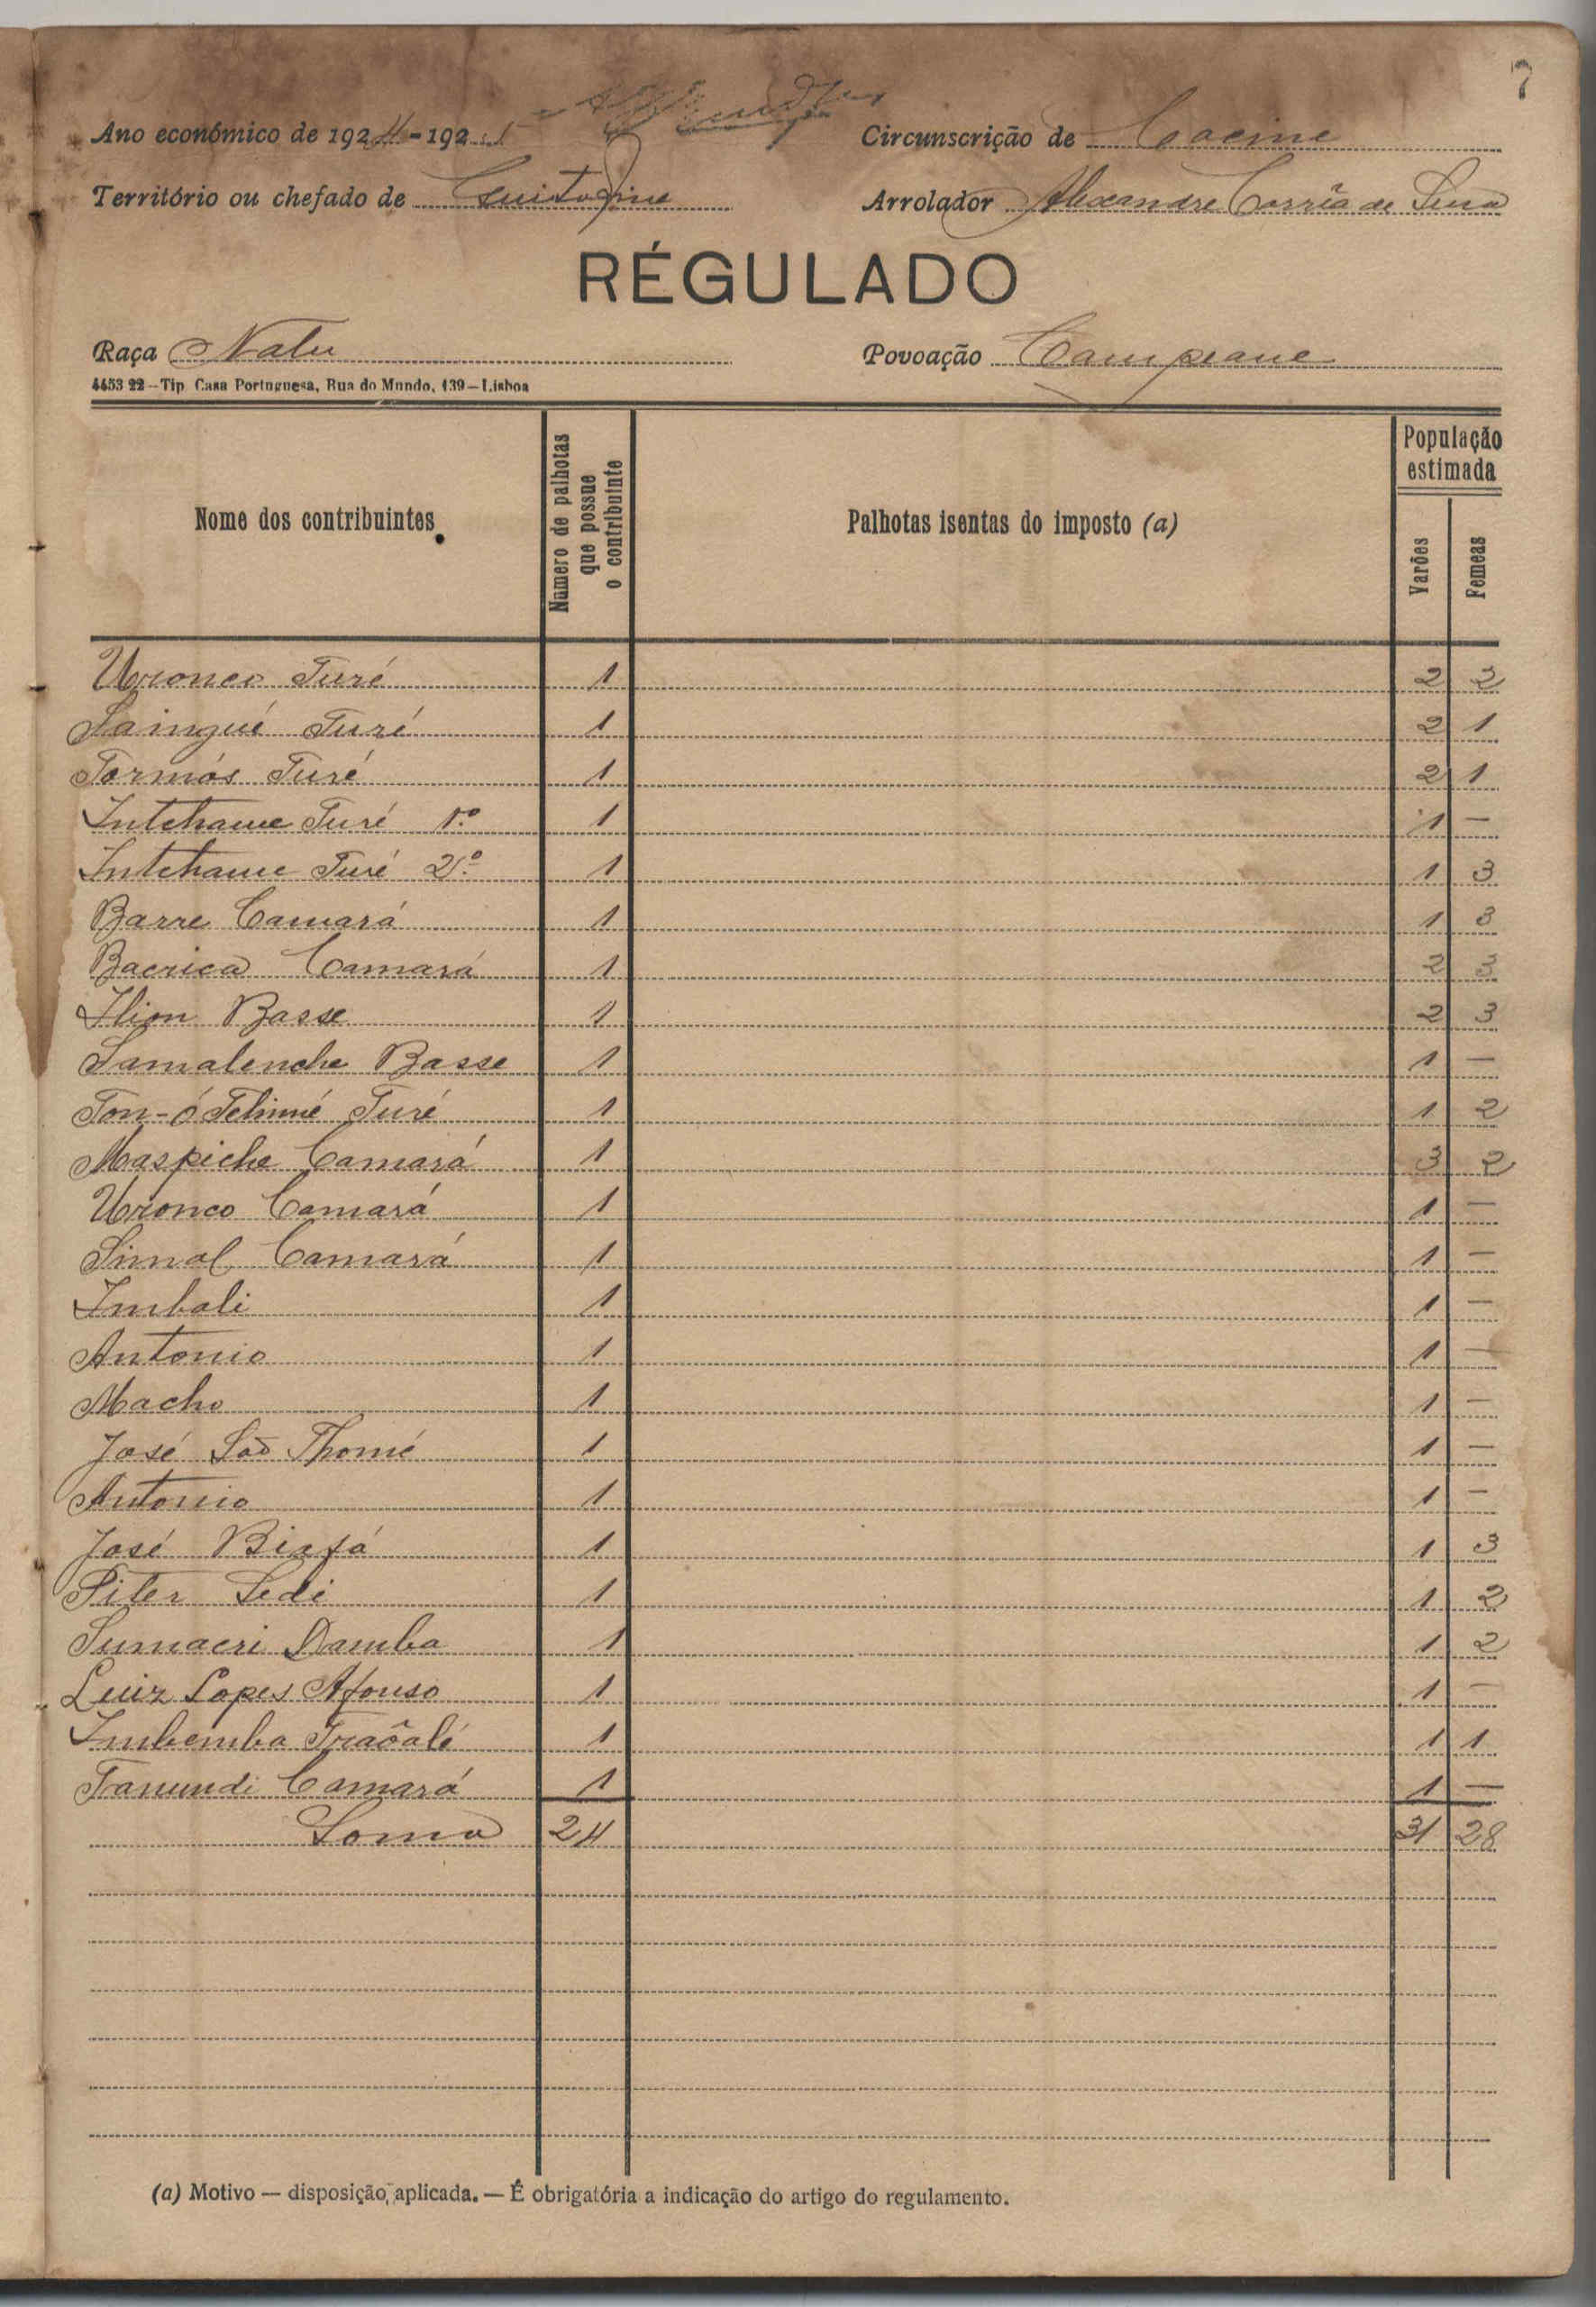 7
Ano económico de 1924-1925 Circunscrição de Cacine
Território ou chefado de Guitafine Arrolador Alexandre Corrêa de Sena
RÉGULADO
Raça Nalu Povoação Campeane
4453 22 - Tip. Casa Portuguesa, Rua do Mundo, 139 - Lisboa
Nome dos contribuintes Número de palhotas que possue o contribuinte Palhotas isentas do imposto (a) População estimada Varões Femeas
Uronco Turé 1 2 2
Saingué Turé 1 2 1
Tormós Turé 1 2 1
Intchame Turé 1.º 1 1 —
Intchame Turé 2.º 1 1 3
Barre Camará 1 1 3
Bacrica Camará 1 2 3
Ilion Basse 1 2 3
Samalenche Basse 1 1 —
Ton-ó Tchimé Turé 1 1 2
Maspiche Camará 1 3 2
Uronco Camará 1 1 —
Simal Camará 1 1 —
Imbali 1 1 —
Antonio 1 1 —
Macho 1 1 —
José São Thomé 1 1 —
Antonio 1 1 —
José Biafá 1 1 3
Piter Sedi 1 1 2
Sumacri Damba 1 1 2
Luiz Lopes Afonso 1 1 —
Imbemba Traôalé 1 1 1
Fanundi Camará 1 1 —
Soma 24 31 28
(a) Motivo — disposição, aplicada. — É obrigatória a indicação do artigo do regulamento.